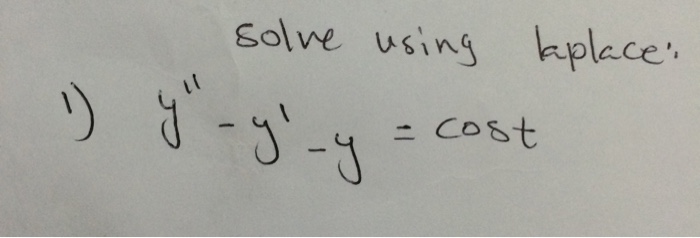 solve using laplace:
1) y'' - y' - y = cost